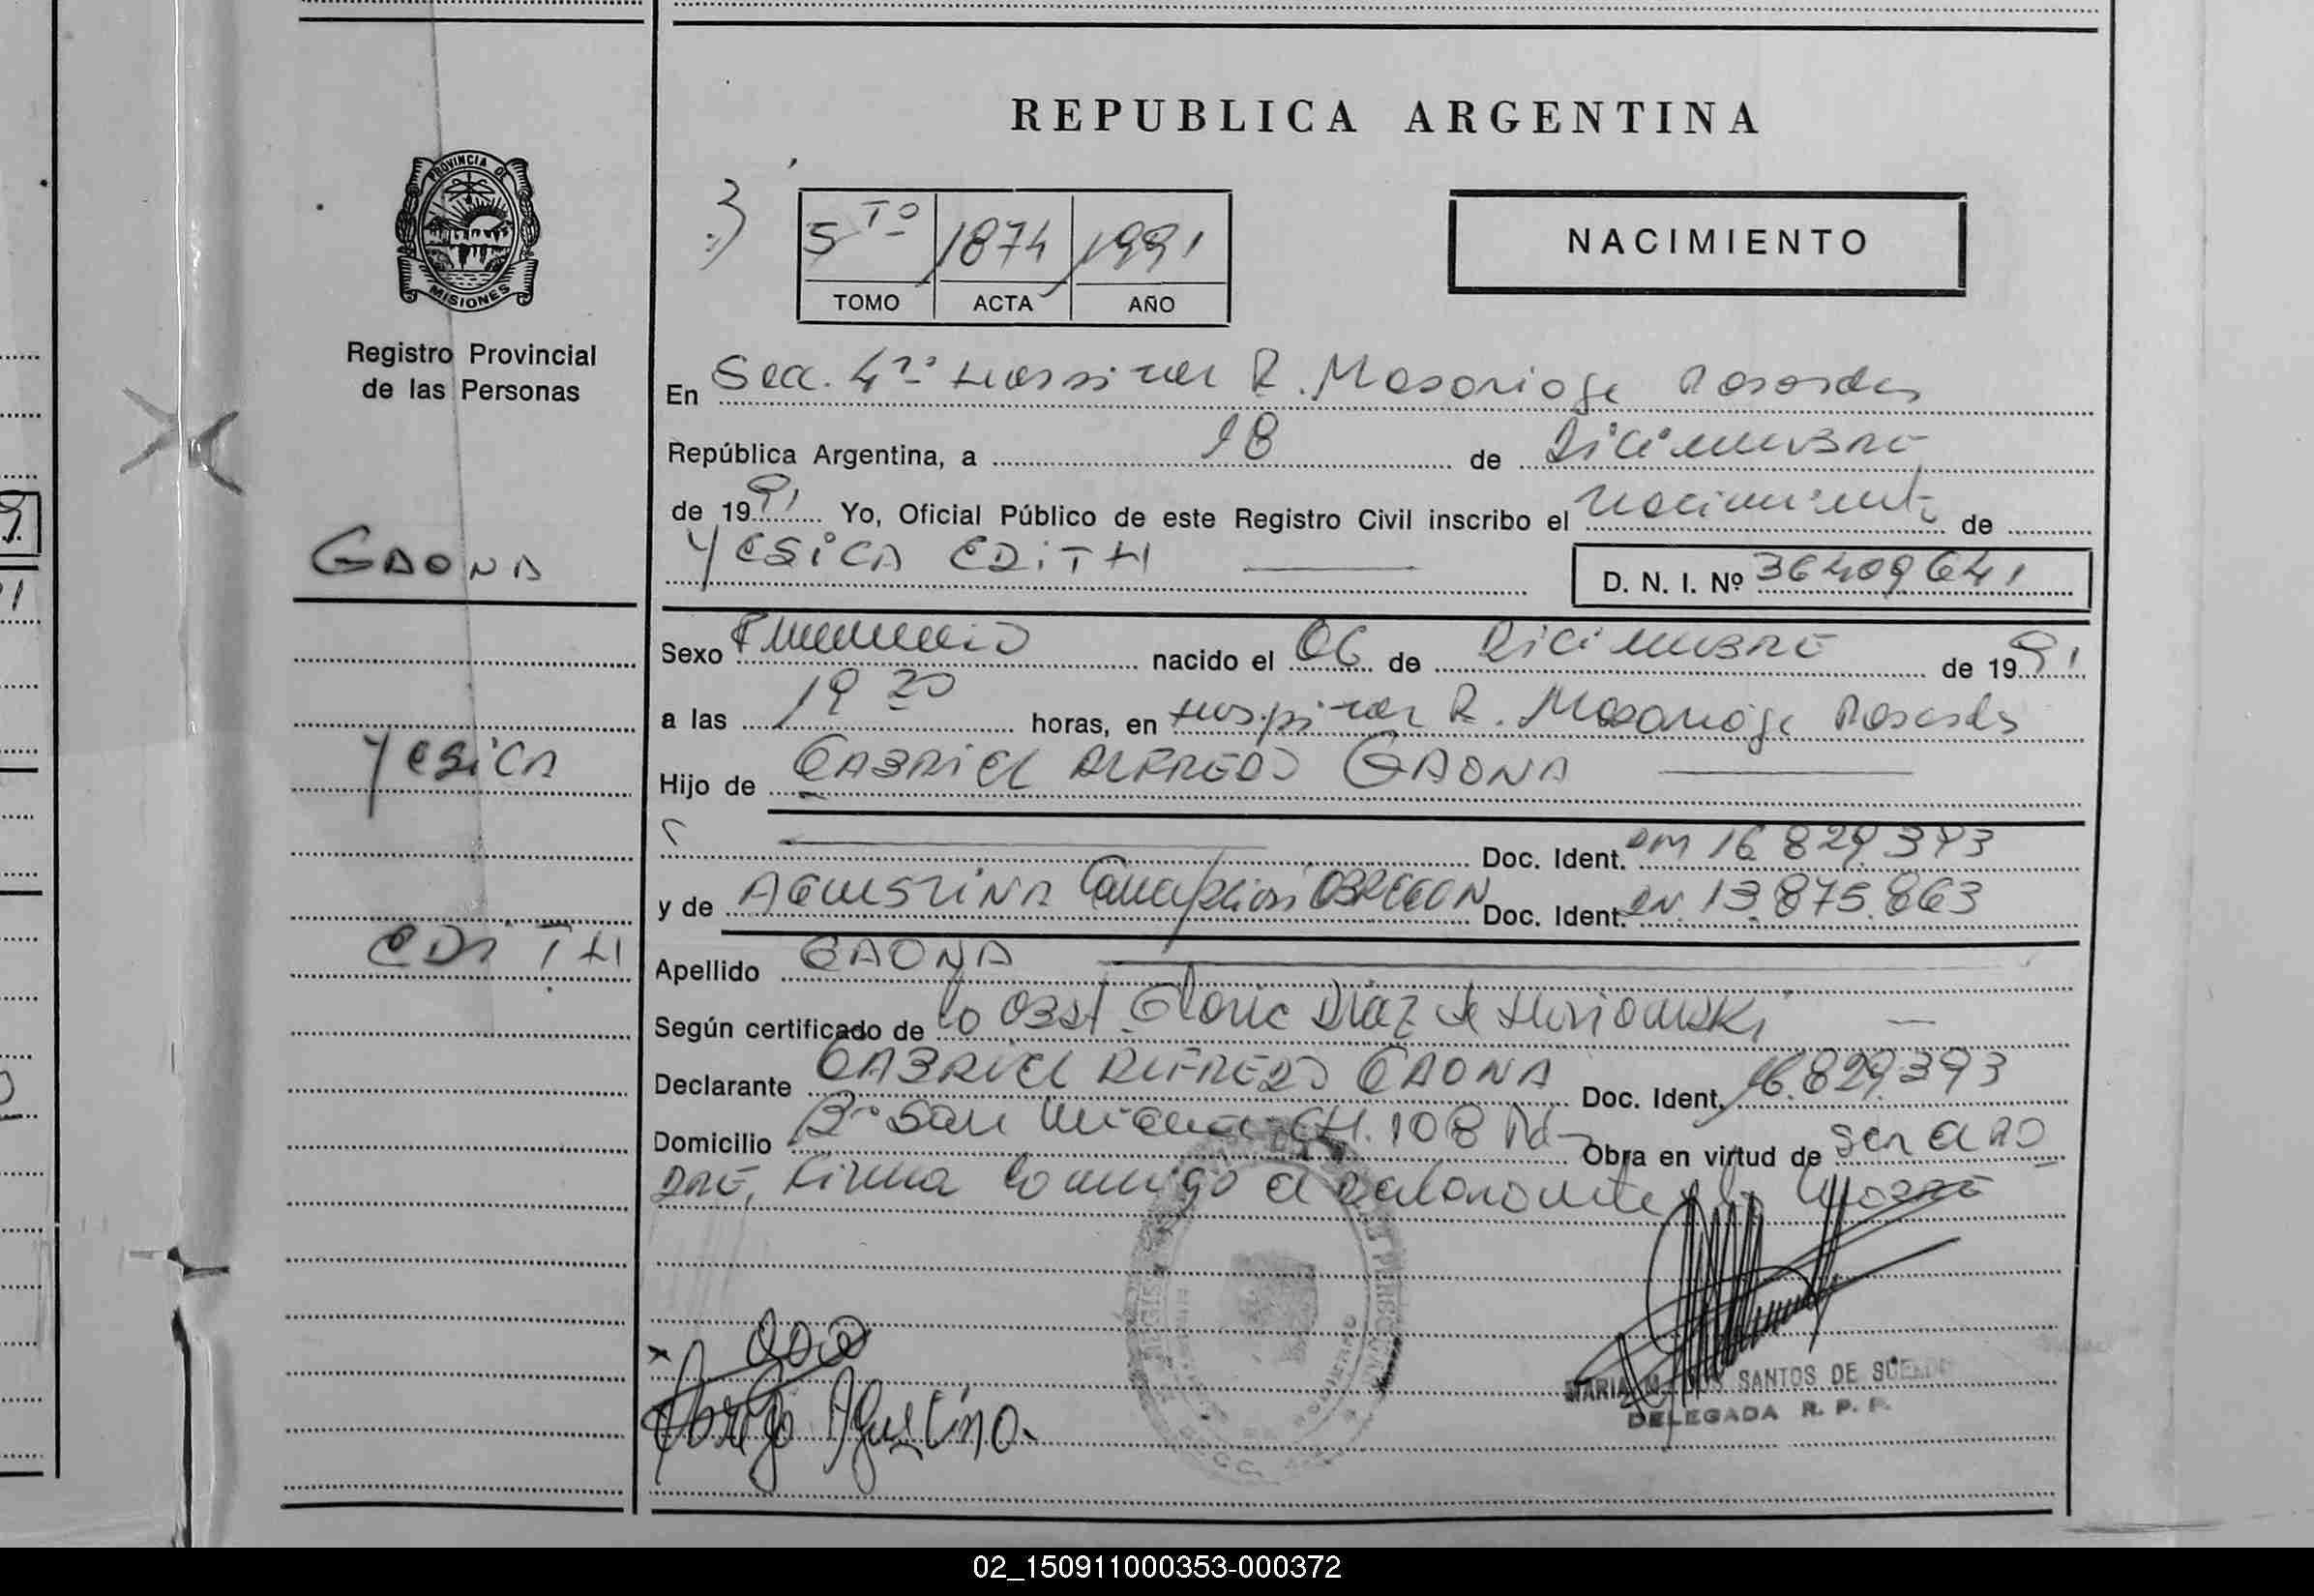 REPUBLICA ARGENTINA
PROVINCIA DE
MISIONES
Registro Provincial
de las Personas
5 TO 1874 1991
TOMO ACTA AÑO
NACIMIENTO
En Secc. 4ta Hospital R. Madariaga Posadas
República Argentina, a 18 de Diciembre
de 1991 Yo, Oficial Público de este Registro Civil inscribo el nacimiento de
YESICA EDITH
D. N. I. Nº 36409641
GAONA
YESICA
EDITH
Sexo Femenino nacido el 06 de Diciembre de 1991
a las 19 20 horas, en Hospital R. Madariaga Posadas
Hijo de GABRIEL ALFREDO GAONA
Doc. Ident. DM 16.829.393
y de AGUSTINA Concepcion OBREGON Doc. Ident. DN. 13.875.863
Apellido GAONA
Según certificado de la Obst. Gloria Diaz de
Declarante GABRIEL ALFREDO GAONA Doc. Ident. 16.829.393
Domicilio Bº San Miguel CH. 108 Pdas Obra en virtud de ser el PA
DRE, Firma conmigo el declarante y la Madre
Agustina
MARIA M. DOS SANTOS DE
DELEGADA R. P. P.
02_150911000353-000372